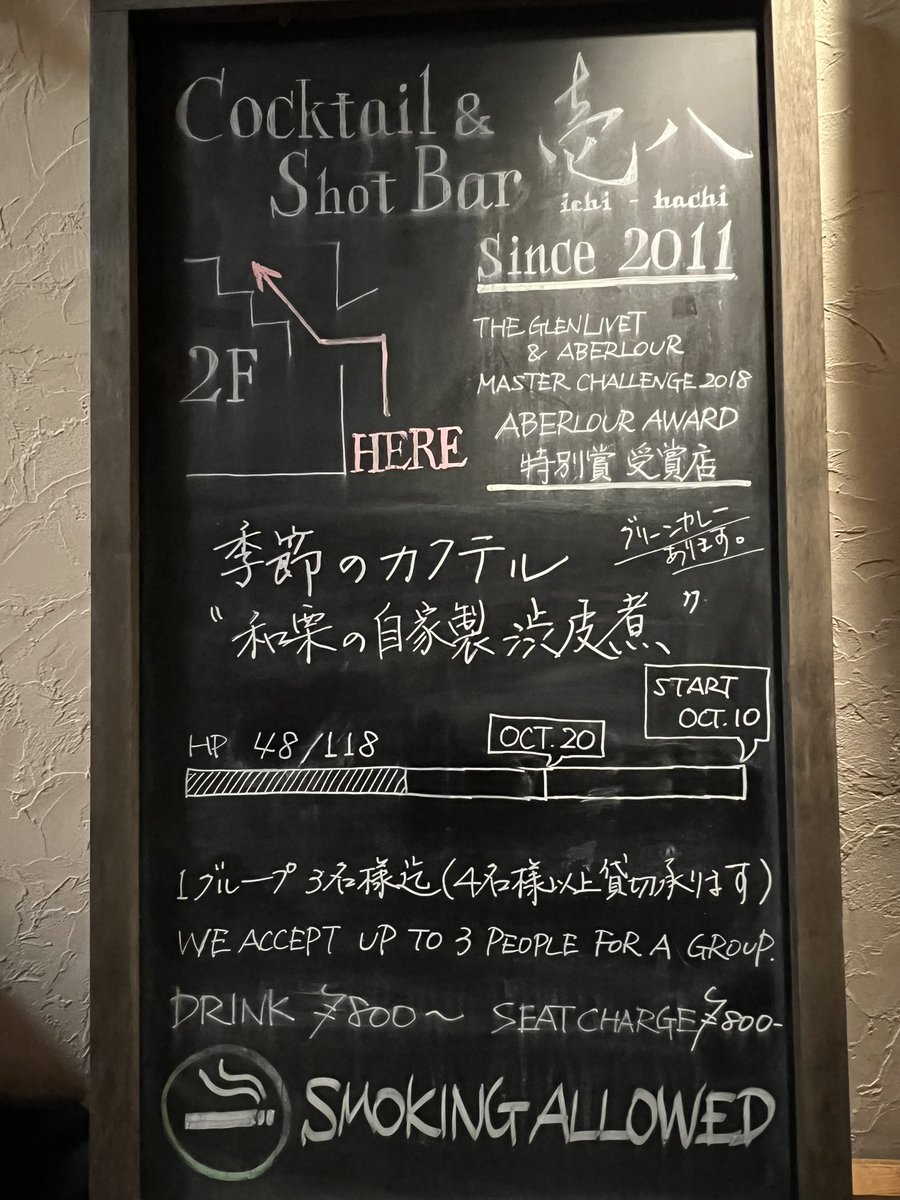 Cocktail &
Shot Bar
壱八
ichi - hachi
Since 2011
THE GLENLIVET
& ABERLOUR
MASTER CHALLENGE 2018
ABERLOUR AWARD
特別賞 受賞店
2F
HERE
季節のカクテル
グリーンカレー
あります。
“和栗の自家製渋皮煮”
START
OCT.10
OCT.20
HP 48/118
1グループ3名様迄(4名様以上貸切承ります)
WE ACCEPT UP TO 3 PEOPLE FOR A GROUP.
DRINK ¥800〜 SEAT CHARGE ¥800-
SMOKING ALLOWED